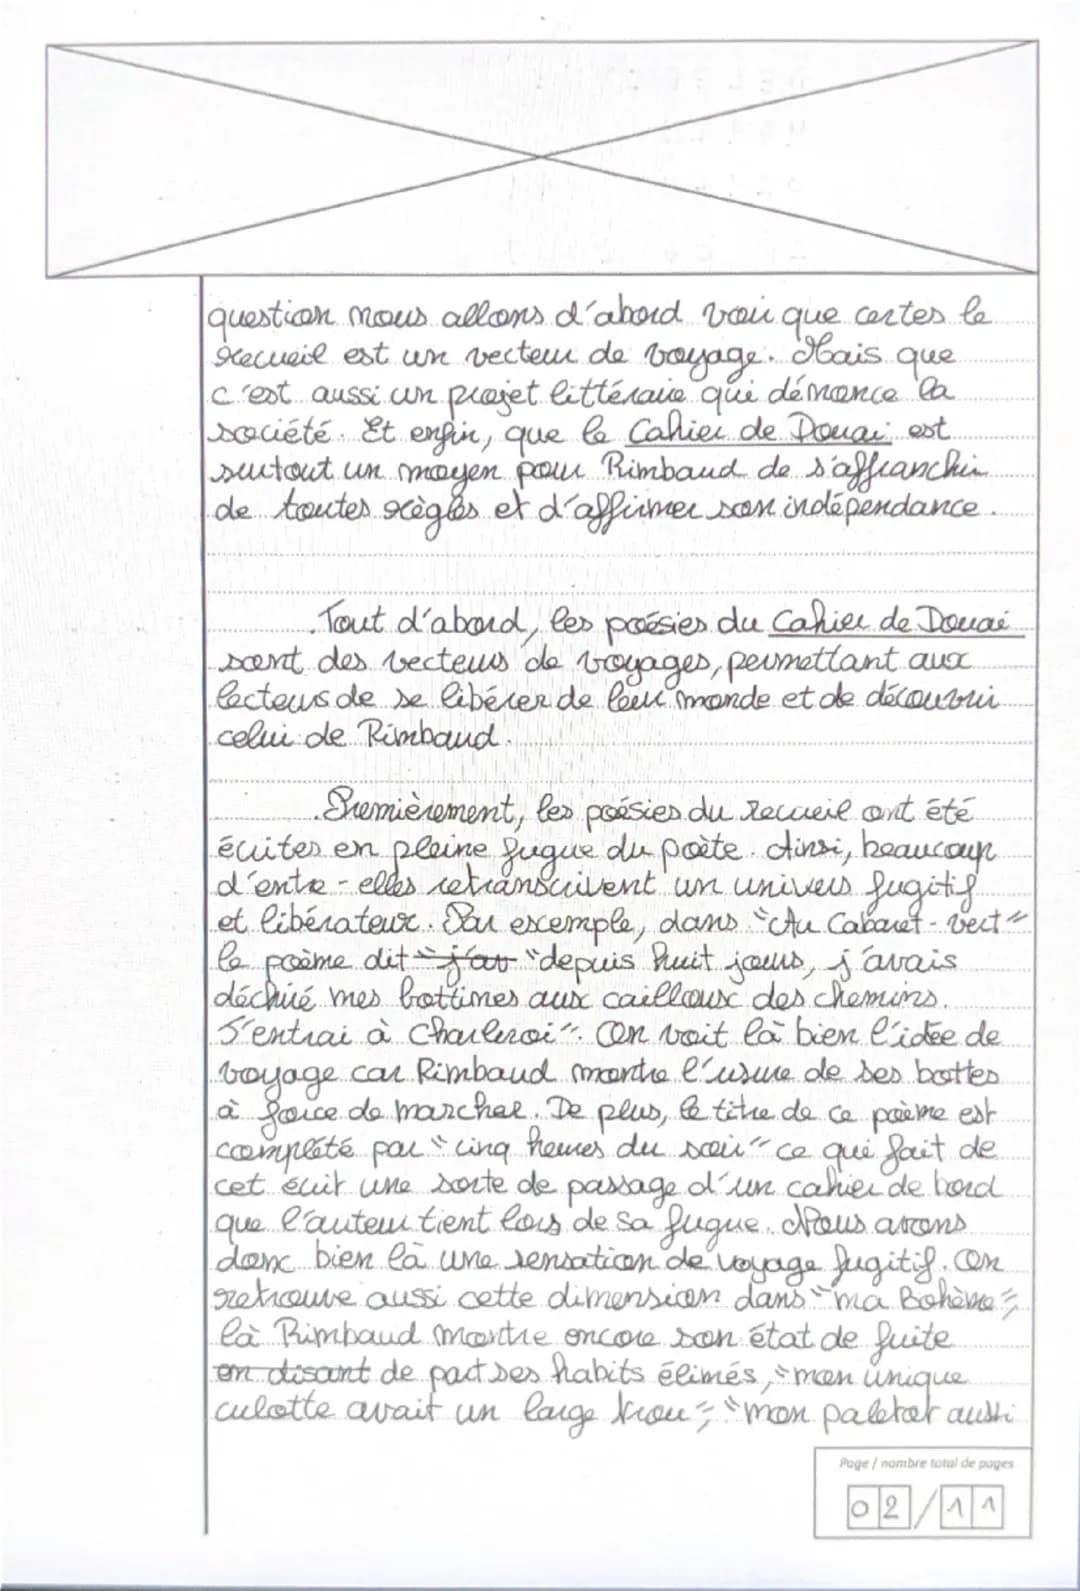 question nous allons d'abord voir que certes le
recueil est un vecteur de voyage. Mais que
c'est aussi un projet littéraire qui dénonce la
société. Et enfin, que le Cahier de Douai est
surtout un moyen pour Rimbaud de s'affranchir
de toutes règles et d'affirmer son indépendance.
Tout d'abord, les poésies du Cahier de Douai
sont des vecteurs de voyages, permettant aux
lecteurs de se libérer de leur monde et de découvrir
celui de Rimbaud.
Premièrement, les poésies du recueil ont été
écrites en pleine fugue du poète. Ainsi, beaucoup
d'entre-elles retranscrivent un univers fugitif
et libérateur. Par exemple, dans "Au Cabaret-vert"
le poème dit "j'av "depuis huit jours, j'avais
déchiré mes bottines aux cailloux des chemins.
J'entrai à Charleroi". On voit là bien l'idée de
voyage car Rimbaud montre l'usure de ses bottes
à force de marcher. De plus, le titre de ce poème est
complété par "cinq heures du soir" ce qui fait de
cet écrit une sorte de passage d'un cahier de bord
que l'auteur tient lors de sa fugue. Nous avons
donc bien là une sensation de voyage fugitif. On
retrouve aussi cette dimension dans "ma Bohème",
là Rimbaud montre encore son état de fuite
en disant de part ses habits élimés, "mon unique
culotte avait un large trou", "mon paletot aussi
Page / nombre total de pages
02/11